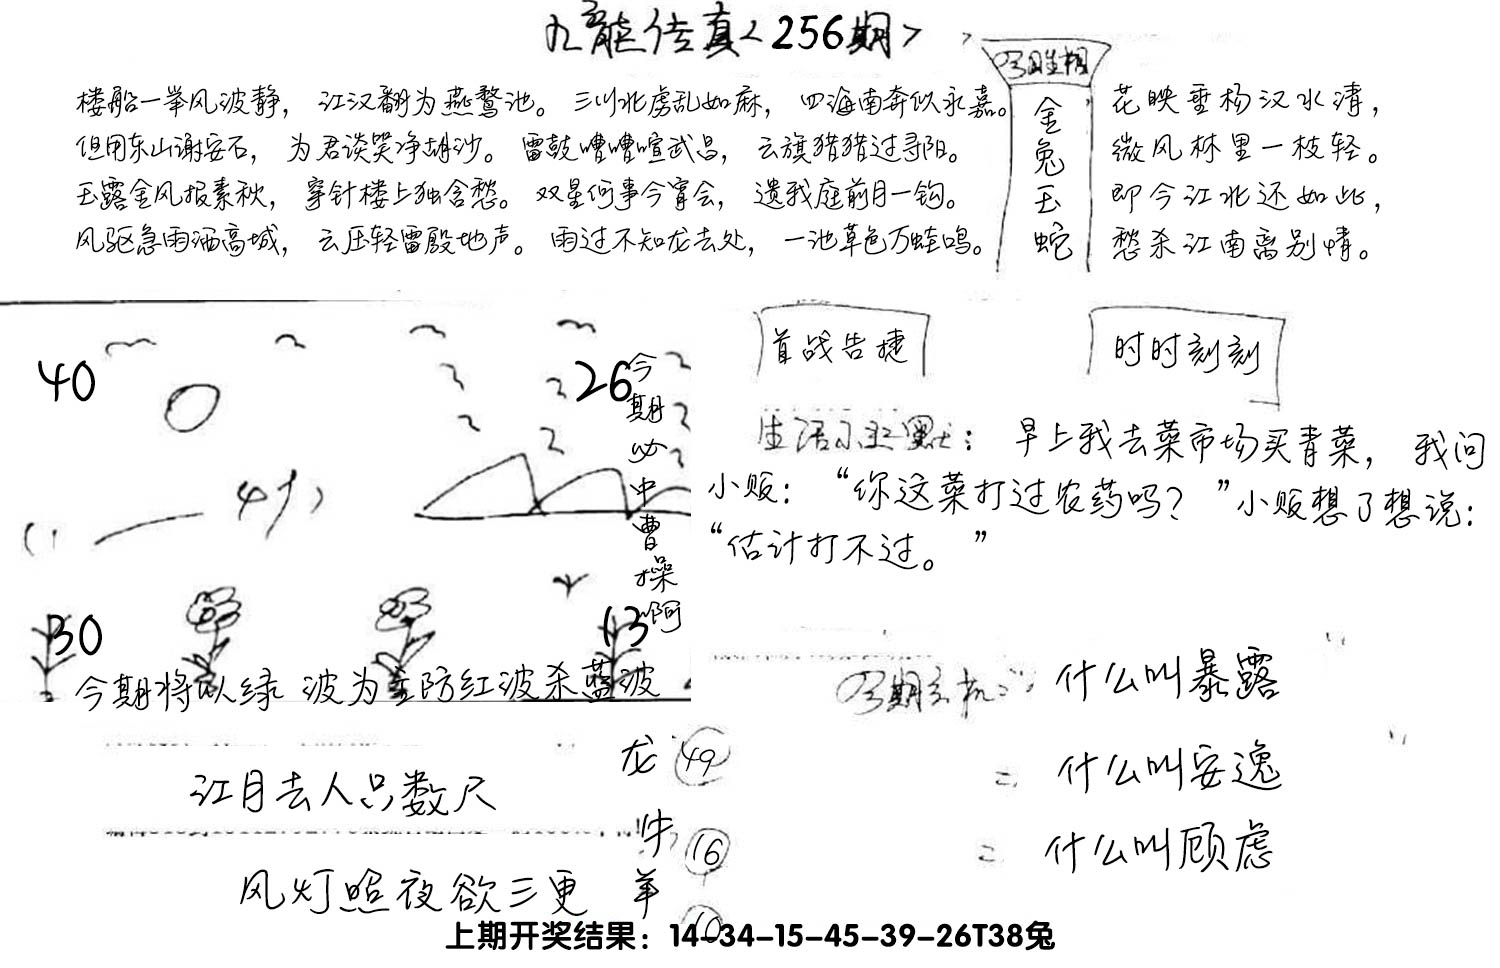 九龙传真<256期>
楼船一举风波静，江汉翻为燕鹜池。三川北虏乱如麻，四海南奔似永嘉。
但用东山谢安石，为君谈笑净胡沙。雷鼓嘈嘈喧武昌，云旗猎猎过寻阳。
玉露金风报素秋，穿针楼上独含愁。双星何事今宵会，遗我庭前月一钩。
风驱急雨洒高城，云压轻雷殷地声。雨过不知龙去处，一池草色万蛙鸣。
金兔玉蛇
花映垂杨汉水清，
微风林里一枝轻。
即今江北还如此，
愁杀江南离别情。
40
26
今期必中曹操啊
30
13
今期将以绿波为主防红波杀蓝波
首战告捷
时时刻刻
生活幽默：早上我去菜市场买青菜，我问
小贩：“你这菜打过农药吗？”小贩想了想说：
“估计打不过。”
什么叫暴露
什么叫安逸
什么叫顾虑
江月去人只数尺
风灯照夜欲三更
龙 49
牛 16
羊 10
上期开奖结果：14-34-15-45-39-26T38兔